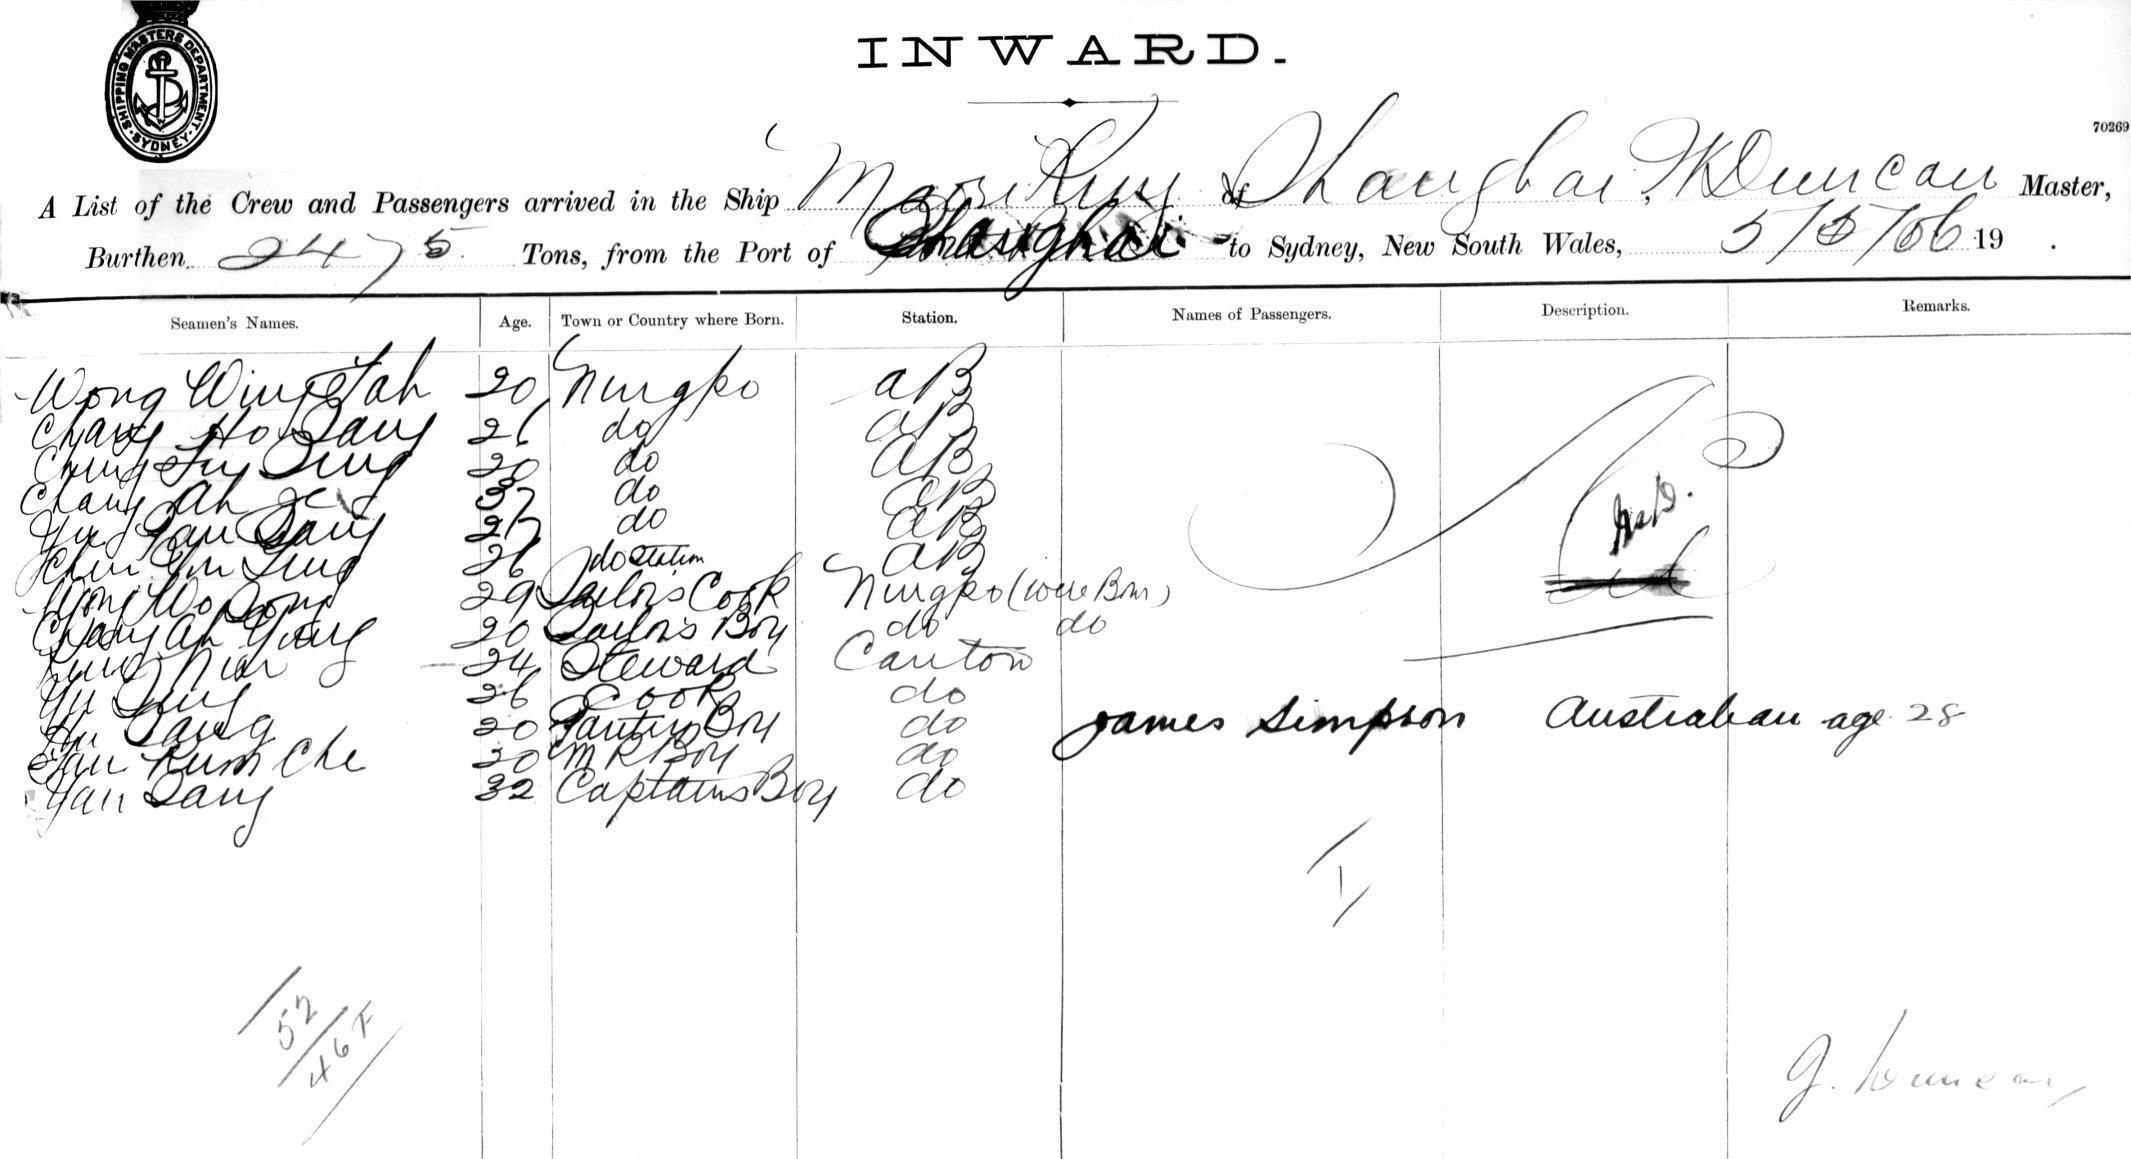 SHIPPING MASTERS DEPARTMENT. SYDNEY
INWARD.
70269
A List of the Crew and Passengers arrived in the Ship Maori King of Shanghai, Duncan Master,
Burthen 2475 Tons, from the Port of Shanghai to Sydney, New South Wales, 5/5/06 19 .
Seamen's Names. Age. Town or Country where Born. Station. Names of Passengers. Description. Remarks.
Wong Wing Tah 20 Ningpo AB
Chang Ho Sang 26 do AB
Ching Fuy Sing 20 do AB
Chang Ah 37 do AB
Yu Sang 27 do AB
Sing 26 do Station AB
Wong Wo Dong 29 Sailors Cook Ningpo (were Born)
Chang Ah Yong 20 Sailors Boy do do
24 Steward Canton
Yu Sing 26 Cook do
Ah Sang 20 Pantry Boy do James Simpson Australian age 28
Kum Che 20 M R Boy do
Yan Sang 32 Captains Boy do
I
52
46 F
G. Duncan